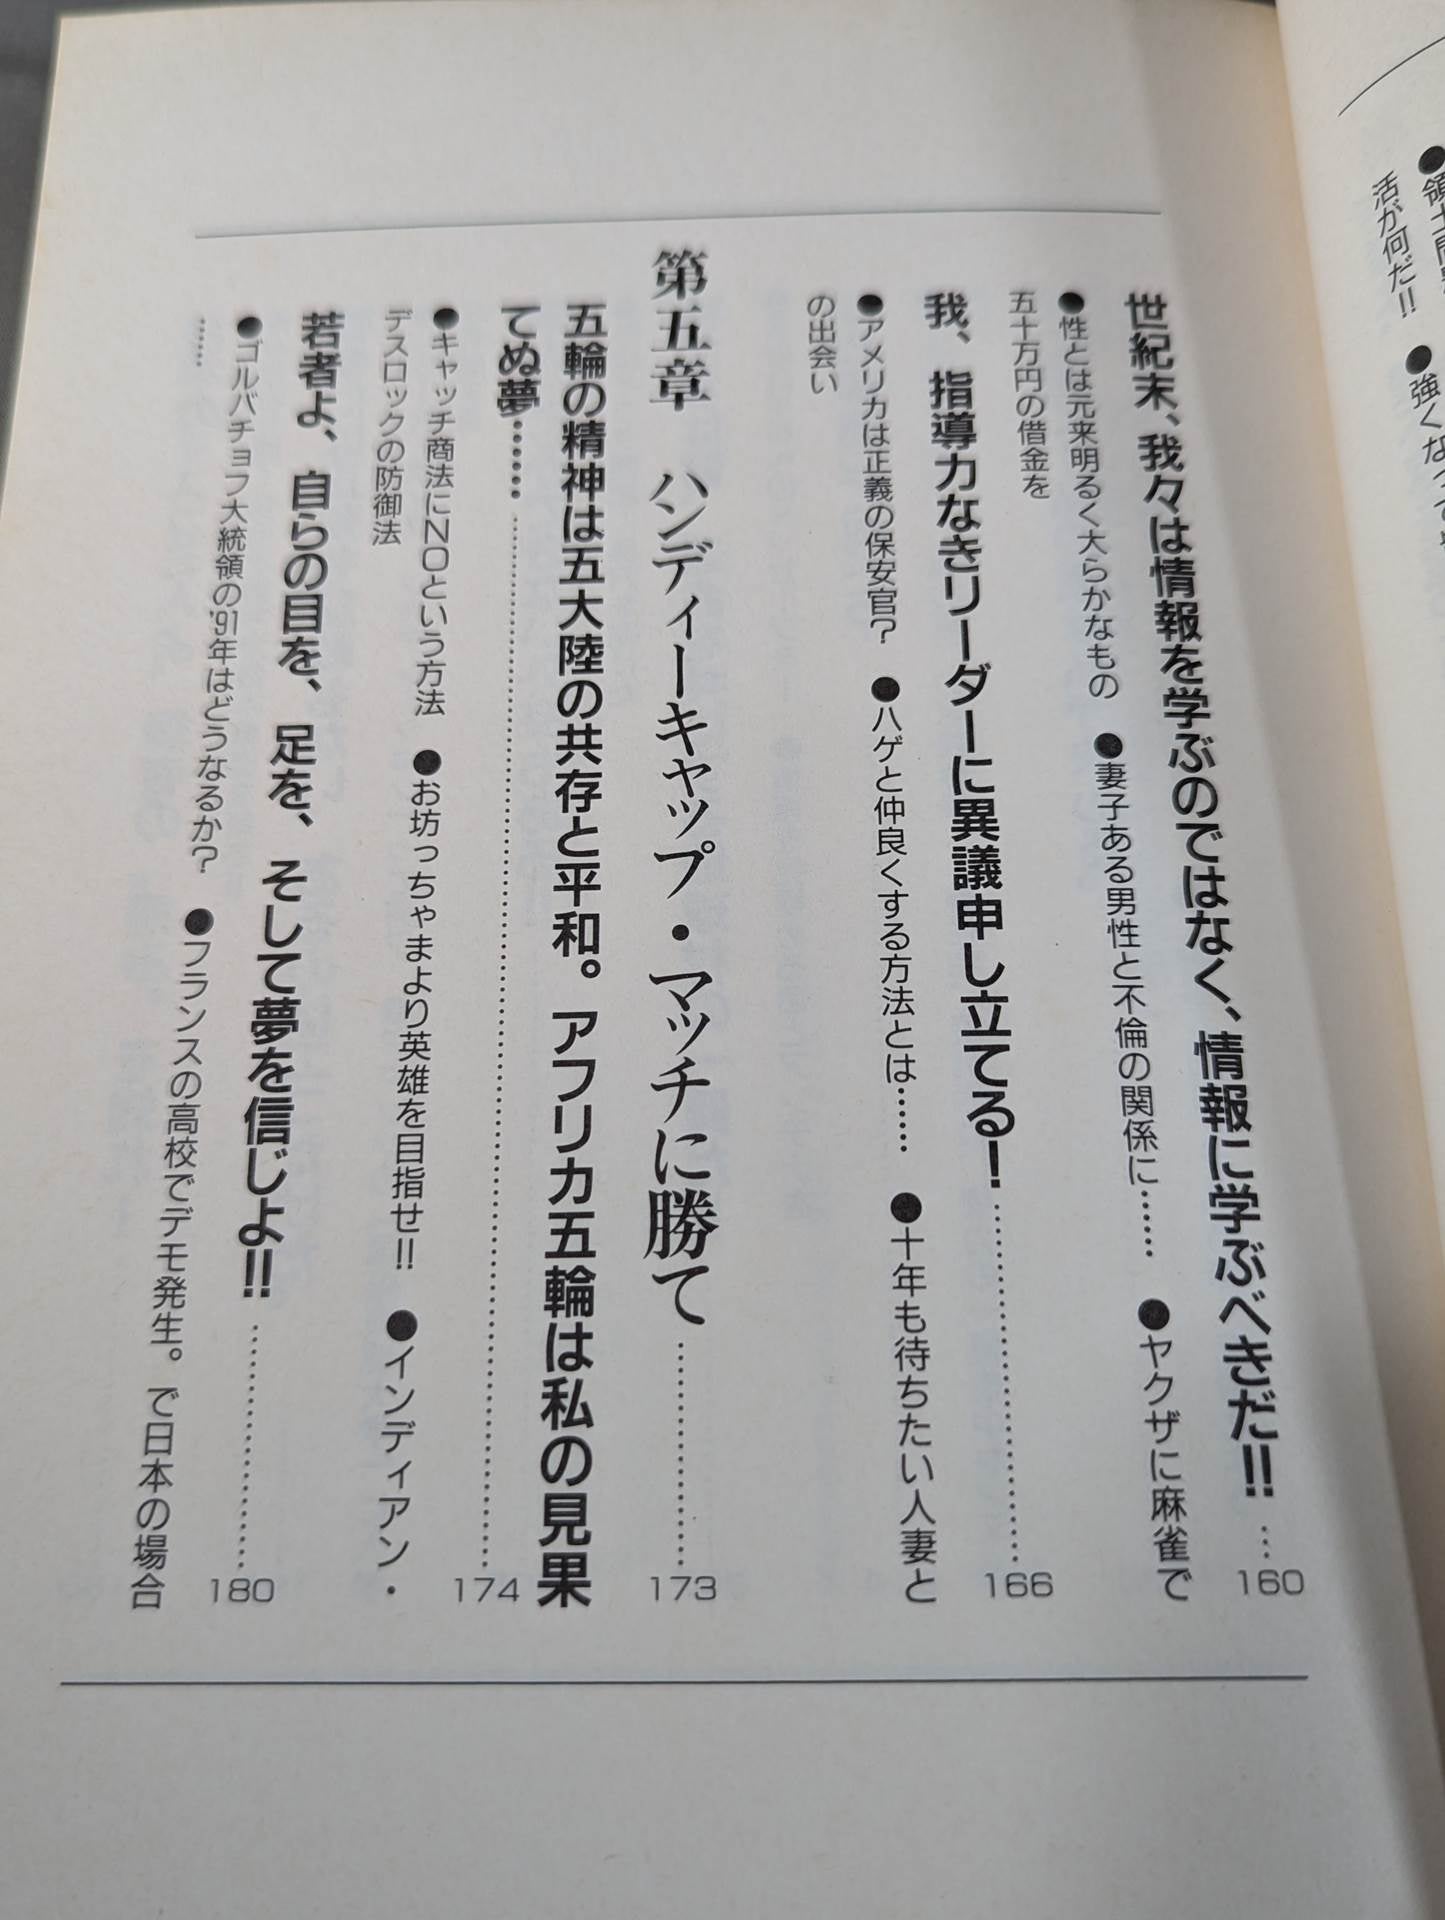 活が何だ!! ●強くな
世紀末、我々は情報を学ぶのではなく、情報に学ぶべきだ!! … 160
●性とは元来明るく大らかなもの ●妻子ある男性と不倫の関係に…… ●ヤクザに麻雀で
五十万円の借金を
我、指導力なきリーダーに異議申し立てる! ………… 166
●アメリカは正義の保安官? ●ハゲと仲良くする方法とは…… ●十年も待ちたい人妻と
の出会い
第五章 ハンディーキャップ・マッチに勝て ………… 173
五輪の精神は五大陸の共存と平和。アフリカ五輪は私の見果
てぬ夢…… ………… 174
●キャッチ商法にNOという方法 ●お坊っちゃまより英雄を目指せ!! ●インディアン・
デスロックの防御法
若者よ、自らの目を、足を、そして夢を信じよ!! ………… 180
●ゴルバチョフ大統領の'91年はどうなるか? ●フランスの高校でデモ発生。で日本の場合
……